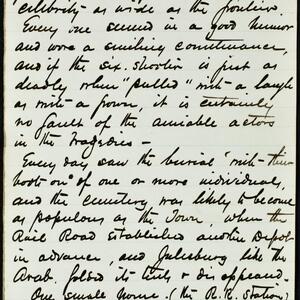 "celebrity" as wide as the frontier.
Every one seemed in a good humor
and wore a smiling countenance,
and if the six-shooter is just as
deadly when "pulled" with a laugh
as with a frown, it is certainly
no fault of the amiable actors
in the tragedies -
Every day saw the burial "with their
boots on" of one or more individuals,
and the cemetery was likely to become
as populous as the town, when the
Rail Road established another Depot
in advance, and Julesburg like the
Arab. folded its tents & disappeared.
One small house. (the R.R. Station)